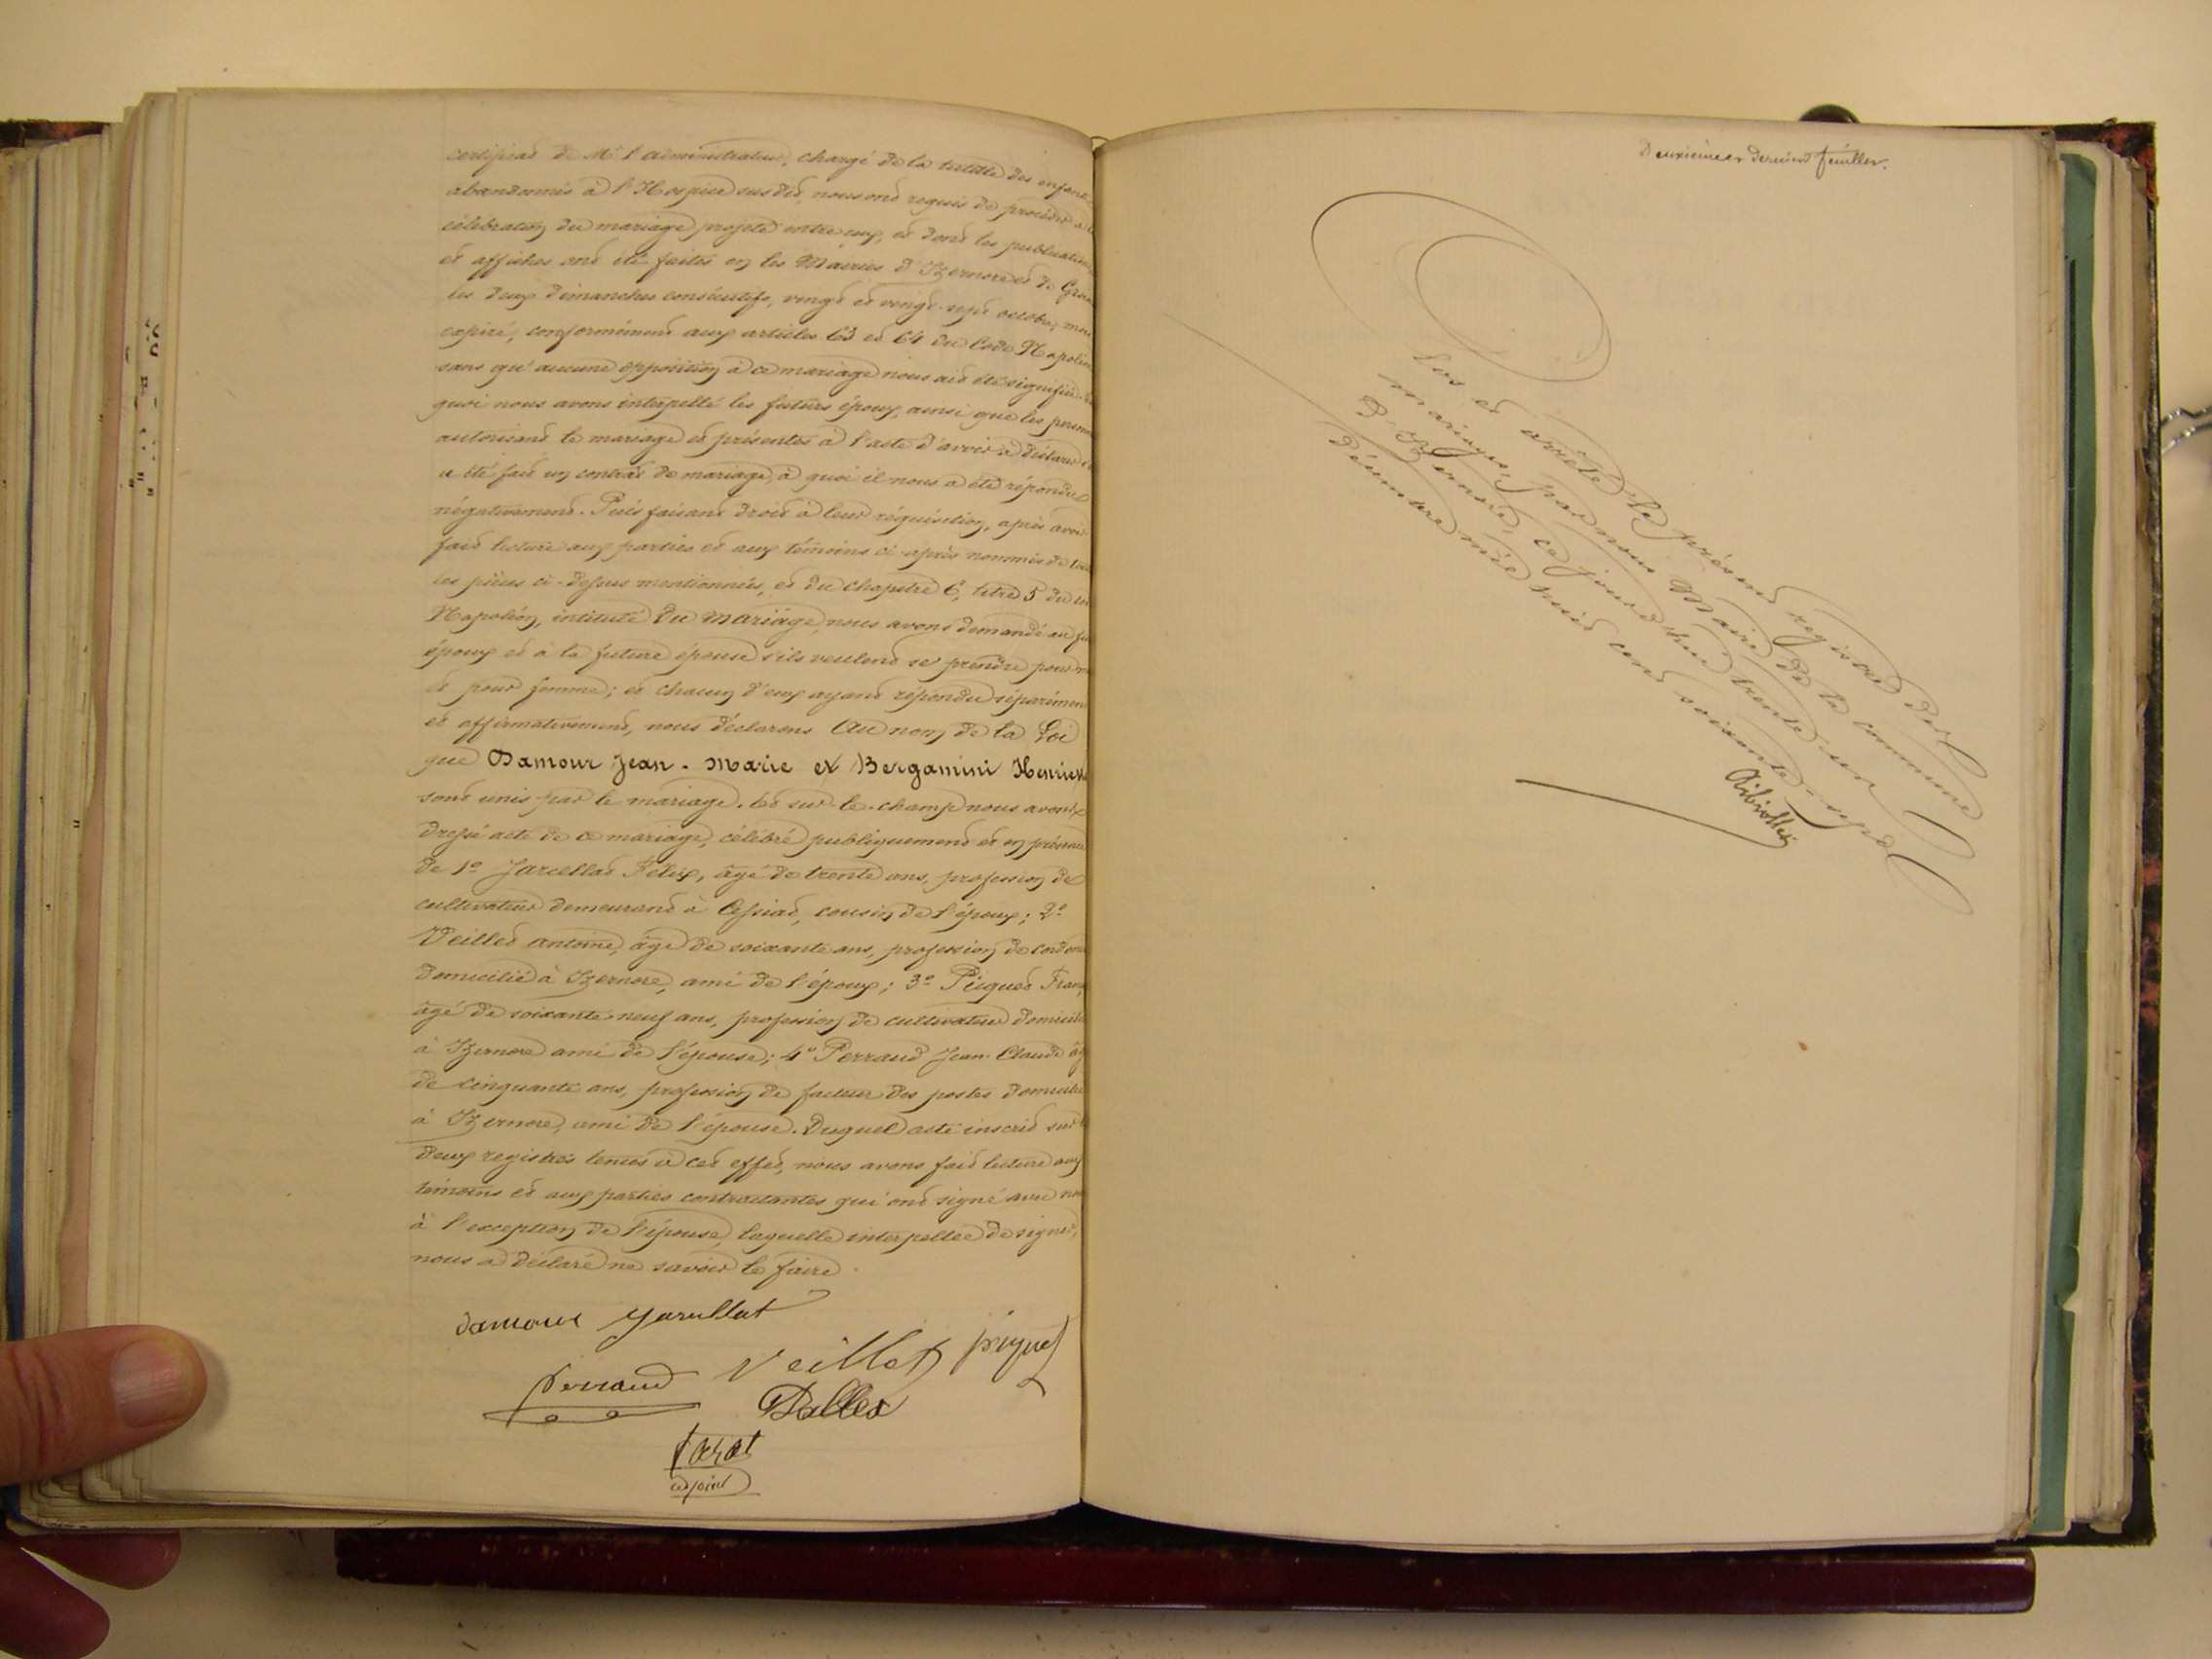 certificat de Mr l'administrateur, chargé de la tutelle des enfants
abandonnés à l'Hospice susdit, nous ont requis de procéder à la
célébration du mariage projeté entre eux, et dont les publications
et affiches ont été faites en les Mairies d'Izernore et de
les deux dimanches consécutifs, vingt et vingt-sept octobre, mois
expiré, conformément aux articles 63 et 64 du Code Napoléon
sans qu'aucune opposition à ce mariage nous ait été signifiée.
quoi nous avons interpellé les futurs époux, ainsi que les person
autorisant le mariage et présentes à l'acte d'avoir à déclarer
a été fait un contrat de mariage, à quoi il nous a été répondu
négativement. Puis faisant droit à leur réquisition, après avoir
fait lecture aux parties et aux témoins ci-après nommés de tou
les pièces ci-dessus mentionnées, et du chapitre 6, titre 5 du
Napoléon, intitulé Du Mariage, nous avons demandé au fu
époux et à la future épouse s'ils veulent se prendre pour m
et pour femme; et chacun d'eux ayant répondu séparément
et affirmativement, nous déclarons Au nom de la Loi
que Damour Jean-Marie et Bergamini Henriett
sont unis par le mariage. Et sur-le-champ nous avons
dressé acte de ce mariage, célébré publiquement et en présence
de 1º Jarcellat Félix, âgé de trente ans, profession de
cultivateur demeurant à Cessiat, cousin de l'époux; 2º
Veillet Antoine, âgé de soixante ans, profession de cordon
domicilié à Izernore, ami de l'époux; 3º Piquet Fran
âgé de soixante neuf ans, profession de cultivateur domicili
à Izernore ami de l'épouse; 4º Perraud Jean-Claude âg
de cinquante ans, profession de facteur des postes domicilié
à Izernore, ami de l'épouse. Duquel acte inscrit sur
deux registres tenus à cet effet, nous avons fait lecture aux
témoins et aux parties contractantes qui ont signé avec no
à l'exception de l'épouse, laquelle interpellée de signer,
nous a déclaré ne savoir le faire.
Damour
Perraud Veillet piquet
adjoint
Deuxième et dernier feuillet.
Clos et arrêté le présent registre des
mariages, par nous Maire de la commune
d'Izernore, ce jourd'hui trente-un
décembre mil huit cent soixante-sept